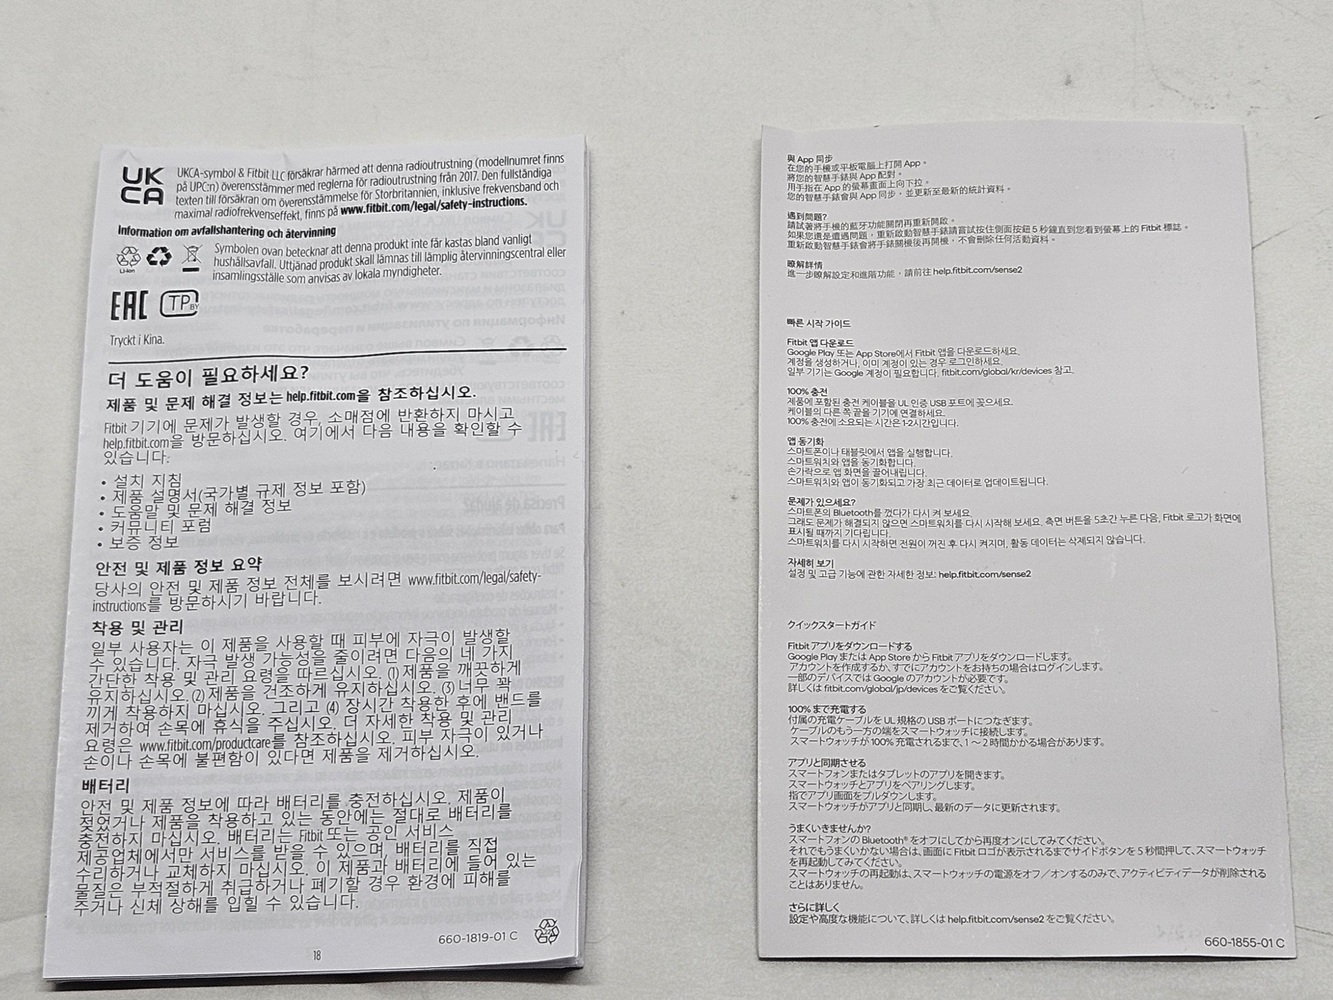 UK
CA
UKCA-symbol & Fitbit LLC försäkrar härmed att denna radioutrustning (modellnumret finns
på UPC:n) överensstämmer med reglerna för radioutrustning från 2017. Den fullständiga
texten till försäkran om överensstämmelse för Storbritannien, inklusive frekvensband och
maximal radiofrekvenseffekt, finns på www.fitbit.com/legal/safety-instructions.
Information om avfallshantering och återvinning
Li-ion
Symbolen ovan betecknar att denna produkt inte får kastas bland vanligt
hushållsavfall. Uttjänad produkt skall lämnas till lämplig återvinningscentral eller
insamlingsställe som anvisas av lokala myndigheter.
EAC TP BY
Tryckt i Kina.
더 도움이 필요하세요?
제품 및 문제 해결 정보는 help.fitbit.com을 참조하십시오.
Fitbit 기기에 문제가 발생할 경우, 소매점에 반환하지 마시고
help.fitbit.com을 방문하십시오. 여기에서 다음 내용을 확인할 수
있습니다:
• 설치 지침
• 제품 설명서(국가별 규제 정보 포함)
• 도움말 및 문제 해결 정보
• 커뮤니티 포럼
• 보증 정보
안전 및 제품 정보 요약
당사의 안전 및 제품 정보 전체를 보시려면 www.fitbit.com/legal/safety-
instructions를 방문하시기 바랍니다.
착용 및 관리
일부 사용자는 이 제품을 사용할 때 피부에 자극이 발생할
수 있습니다. 자극 발생 가능성을 줄이려면 다음의 네 가지
간단한 착용 및 관리 요령을 따르십시오. (1) 제품을 깨끗하게
유지하십시오. (2) 제품을 건조하게 유지하십시오. (3) 너무 꽉
끼게 착용하지 마십시오. 그리고 (4) 장시간 착용한 후에 밴드를
제거하여 손목에 휴식을 주십시오. 더 자세한 착용 및 관리
요령은 www.fitbit.com/productcare를 참조하십시오. 피부 자극이 있거나
손이나 손목에 불편함이 있다면 제품을 제거하십시오.
배터리
안전 및 제품 정보에 따라 배터리를 충전하십시오. 제품이
젖었거나 제품을 착용하고 있는 동안에는 절대로 배터리를
충전하지 마십시오. 배터리는 Fitbit 또는 공인 서비스
제공업체에서만 서비스를 받을 수 있으며, 배터리를 직접
수리하거나 교체하지 마십시오. 이 제품과 배터리에 들어 있는
물질은 부적절하게 취급하거나 폐기할 경우 환경에 피해를
주거나 신체 상해를 입힐 수 있습니다.
660-1819-01 C
18
與 App 同步
在您的手機或平板電腦上打開 App。
將您的智慧手錶與 App 配對。
用手指在 App 的螢幕畫面上向下拉。
您的智慧手錶會與 App 同步，並更新至最新的統計資料。
遇到問題?
請試著將手機的藍牙功能關閉再重新開啟。
如果您還是遭遇問題，重新啟動智慧手錶請嘗試按住側面按鈕 5 秒鐘直到您看到螢幕上的 Fitbit 標誌。
重新啟動智慧手錶會將手錶關機後再開機，不會刪除任何活動資料。
瞭解詳情
進一步瞭解設定和進階功能，請前往 help.fitbit.com/sense2
빠른 시작 가이드
Fitbit 앱 다운로드
Google Play 또는 App Store에서 Fitbit 앱을 다운로드하세요.
계정을 생성하거나, 이미 계정이 있는 경우 로그인하세요.
일부 기기는 Google 계정이 필요합니다. fitbit.com/global/kr/devices 참고.
100% 충전
제품에 포함된 충전 케이블을 UL 인증 USB 포트에 꽂으세요.
케이블의 다른 쪽 끝을 기기에 연결하세요.
100% 충전에 소요되는 시간은 1-2시간입니다.
앱 동기화
스마트폰이나 태블릿에서 앱을 실행합니다.
스마트워치와 앱을 동기화합니다.
손가락으로 앱 화면을 끌어내립니다.
스마트워치와 앱이 동기화되고 가장 최근 데이터로 업데이트됩니다.
문제가 있으세요?
스마트폰의 Bluetooth를 껐다가 다시 켜 보세요.
그래도 문제가 해결되지 않으면 스마트워치를 다시 시작해 보세요. 측면 버튼을 5초간 누른 다음, Fitbit 로고가 화면에
표시될 때까지 기다립니다.
스마트워치를 다시 시작하면 전원이 꺼진 후 다시 켜지며, 활동 데이터는 삭제되지 않습니다.
자세히 보기
설정 및 고급 기능에 관한 자세한 정보: help.fitbit.com/sense2
クイックスタートガイド
Fitbit アプリをダウンロードする
Google Play または App Store から Fitbit アプリをダウンロードします。
アカウントを作成するか、すでにアカウントをお持ちの場合はログインします。
一部のデバイスでは Google のアカウントが必要です。
詳しくは fitbit.com/global/jp/devices をご覧ください。
100% まで充電する
付属の充電ケーブルを UL 規格の USB ポートにつなぎます。
ケーブルのもう一方の端をスマートウォッチに接続します。
スマートウォッチが 100% 充電されるまで、1 〜 2 時間かかる場合があります。
アプリと同期させる
スマートフォンまたはタブレットのアプリを開きます。
スマートウォッチとアプリをペアリングします。
指でアプリ画面をプルダウンします。
スマートウォッチがアプリと同期し、最新のデータに更新されます。
うまくいきませんか?
スマートフォンの Bluetooth® をオフにしてから再度オンにしてみてください。
それでもうまくいかない場合は、画面に Fitbit ロゴが表示されるまでサイドボタンを 5 秒間押して、スマートウォッチ
を再起動してみてください。
スマートウォッチの再起動は、スマートウォッチの電源をオフ／オンするのみで、アクティビティデータが削除される
ことはありません。
さらに詳しく
設定や高度な機能について、詳しくは help.fitbit.com/sense2 をご覧ください。
660-1855-01 C